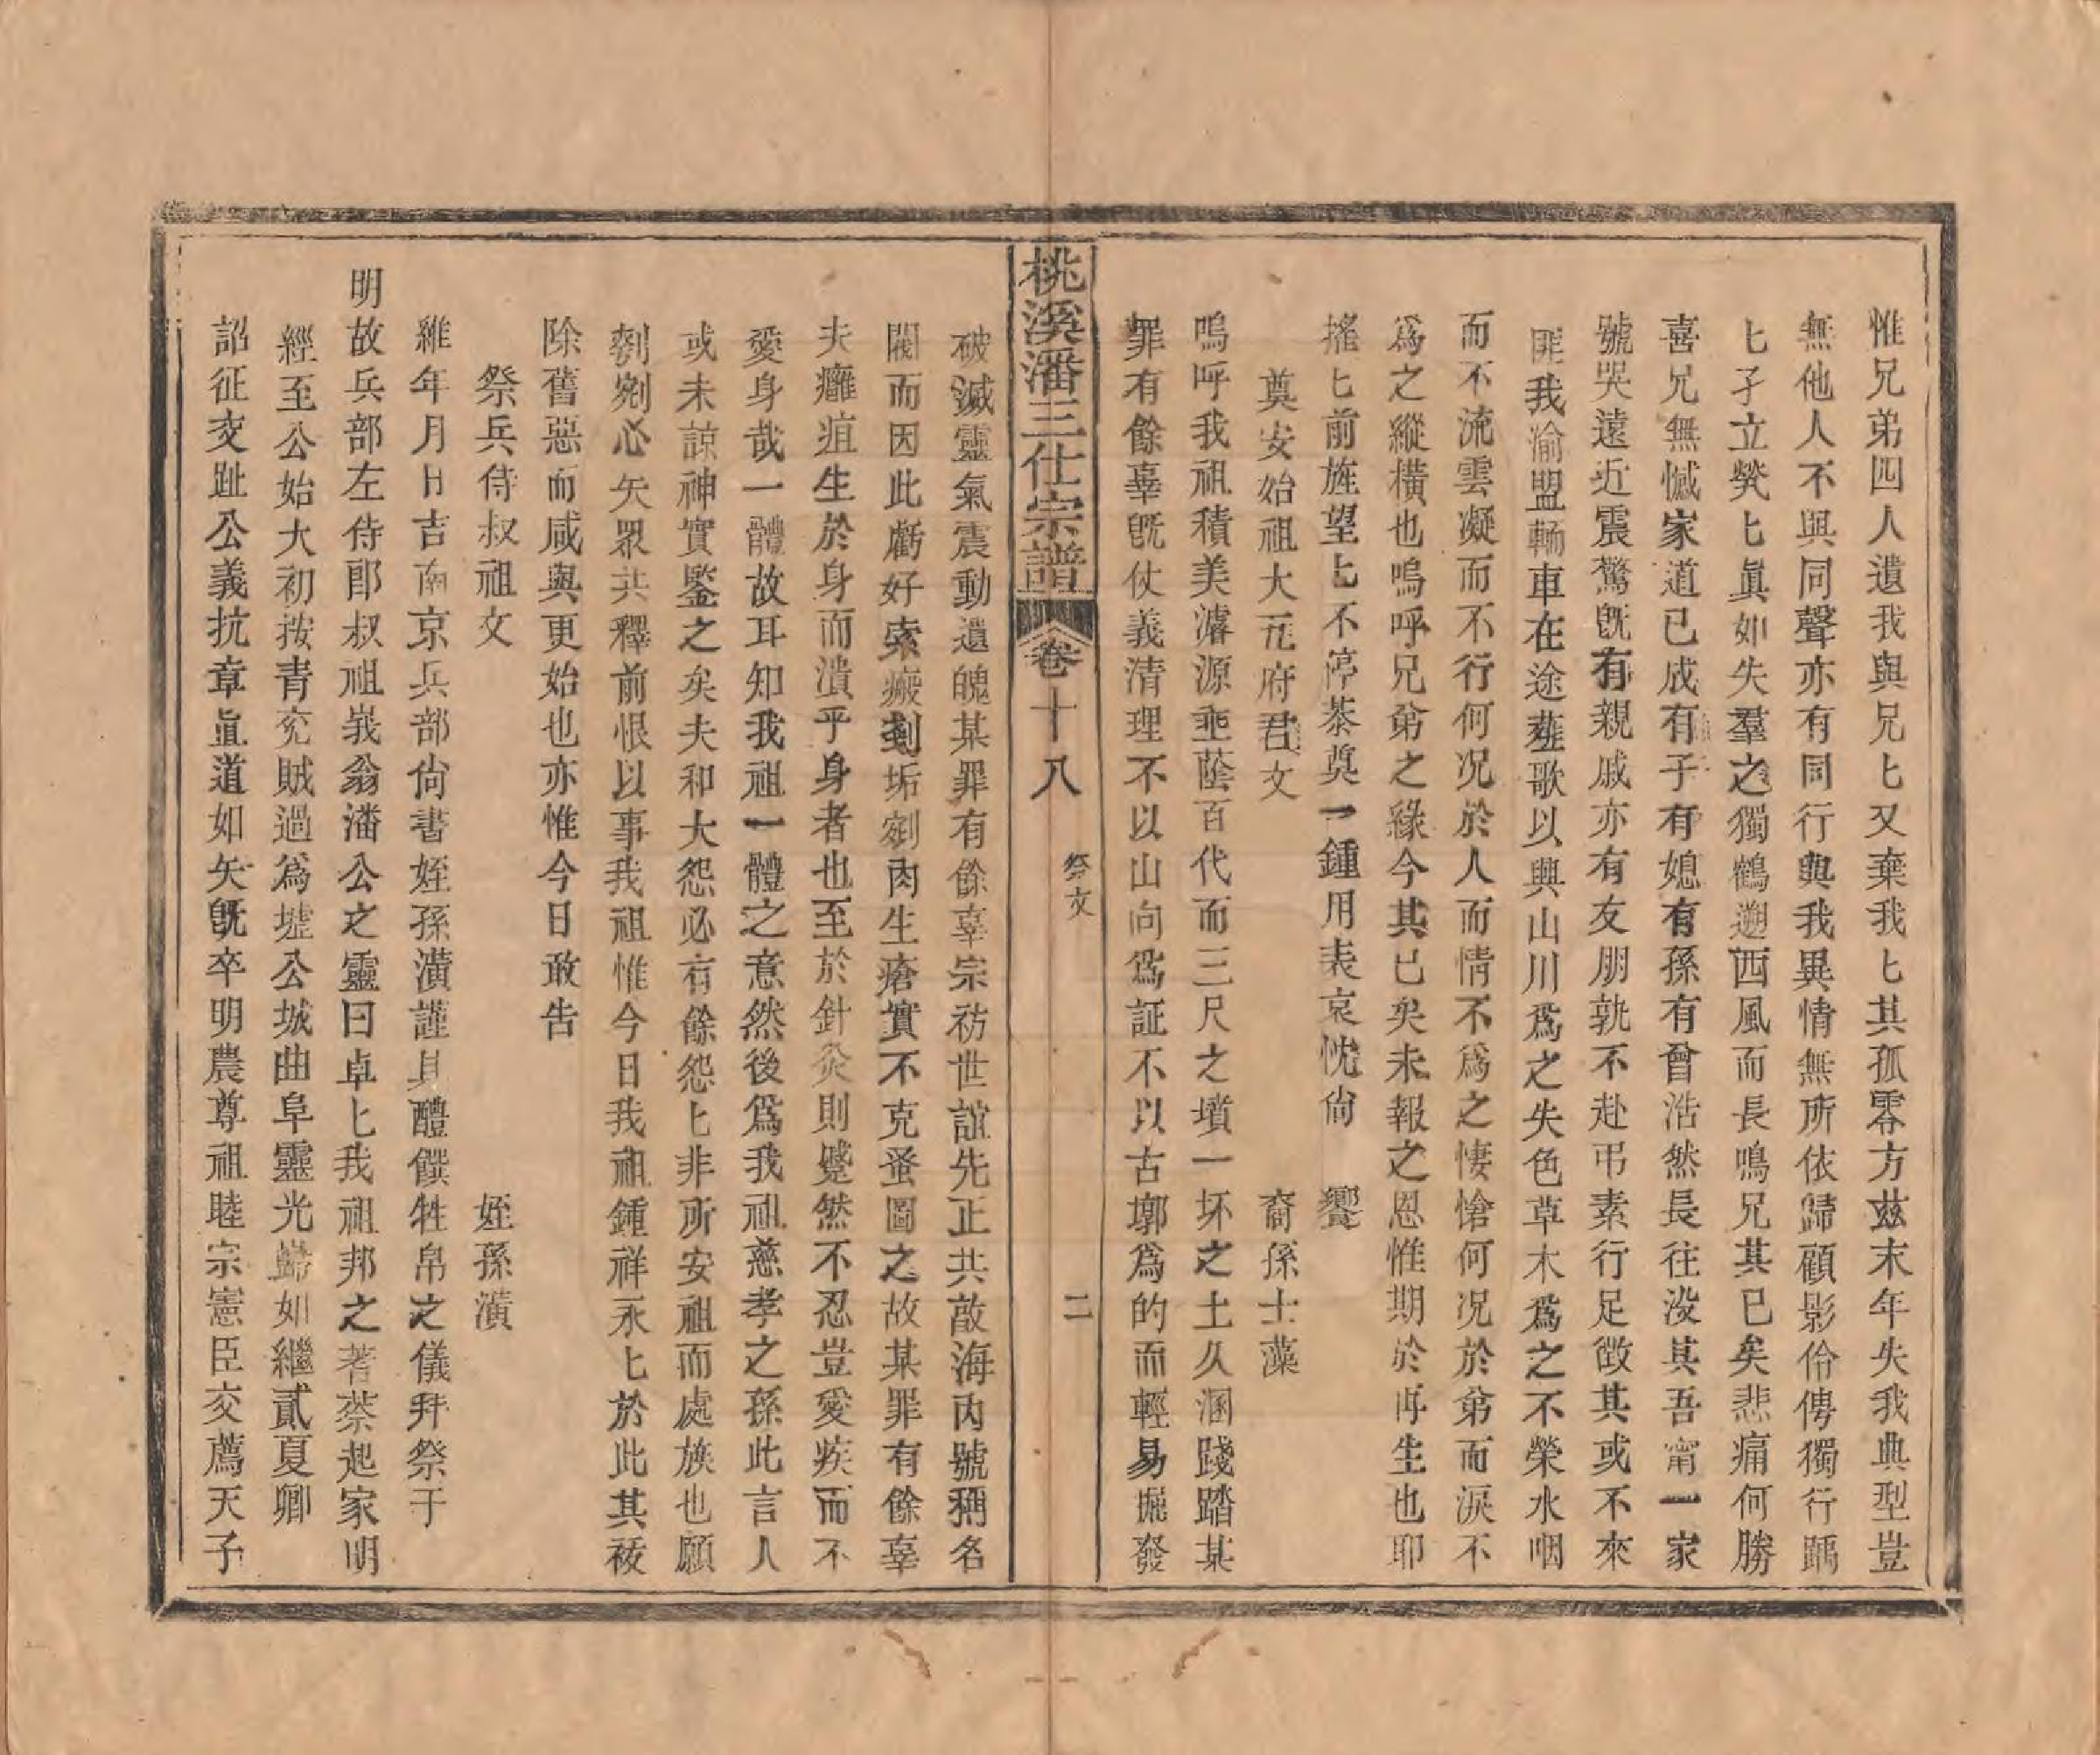 惟兄弟四人遺我與兄匕又棄我匕其孤零方茲末年失我典型豈
無他人不與同聲亦有同行與我異情無所依歸顧影伶俜獨行踽
匕孑立煢匕眞如失羣之獨鶴遡西風而長鳴兄其已矣悲痛何勝
喜兄無憾家道已成有子有媳有孫有曾浩然長往没其吾甯一家
號哭遠近震驚既有親戚亦有友朋孰不赴弔素行足徵其或不來
匪我渝盟輀車在途薤歌以興山川爲之失色草木爲之不榮水咽
而不流雲凝而不行何况於人而情不爲之悽愴何况於弟而淚不
爲之縱橫也嗚呼兄弟之緣今其已矣未報之恩惟期於再生也耶
摇匕前旌望匕不停茶奠一鍾用表哀忱尙　饗
奠安始祖大五府君文　裔孫士藻
嗚呼我祖積美濬源垂蔭百代而三尺之墳一坏之土久溷踐踏某
罪有餘辜既仗義清理不以山向爲証不以古墎爲的而輕易掘發
桃溪潘三仕宗譜　卷十八　祭文　二
破滅靈氣震動遺魄某罪有餘辜宗祊世誼先正共敵海内號稱名
閥而因此虧好索瘢剗垢剜肉生瘡實不克蚤圖之故某罪有餘辜
夫癰疽生於身而潰乎身者也至於針灸則蹙然不忍豈愛疾而不
愛身哉一體故耳知我祖一體之意然後爲我祖慈孝之孫此言人
或未諒神實鑒之矣夫和大怨必有餘怨匕非所安祖而處族也願
剺剜心矢眾共釋前恨以事我祖惟今日我祖鍾祥永匕於此其祓
除舊惡而咸與更始也亦惟今日敢告
祭兵侍叔祖文　姪孫潢
維年月日吉南京兵部尙書姪孫潢謹具醴饌牲帛之儀拜祭于
明故兵部左侍郎叔祖峩翁潘公之靈曰卓匕我祖邦之蓍蔡起家明
經至公始大初按青兖賊過爲墟公城曲阜靈光巋如繼貳夏卿
詔征交趾公義抗章眞道如矢既卒明農尊祖睦宗憲臣交薦天子